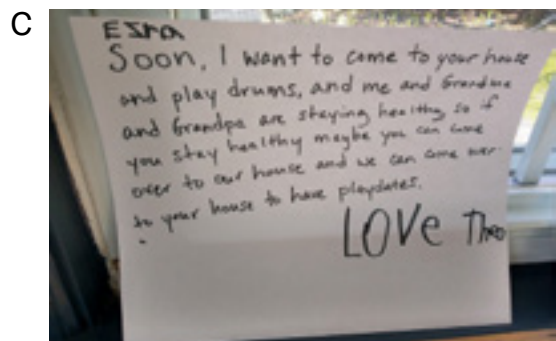 C
Ezra
Soon, I want to come to your house
and play drums, and me and Grandma
and Grandpa are staying healthy, so if
you stay healthy maybe you can come
over to our house and we can come over
to your house to have playdates.
LOVe Theo